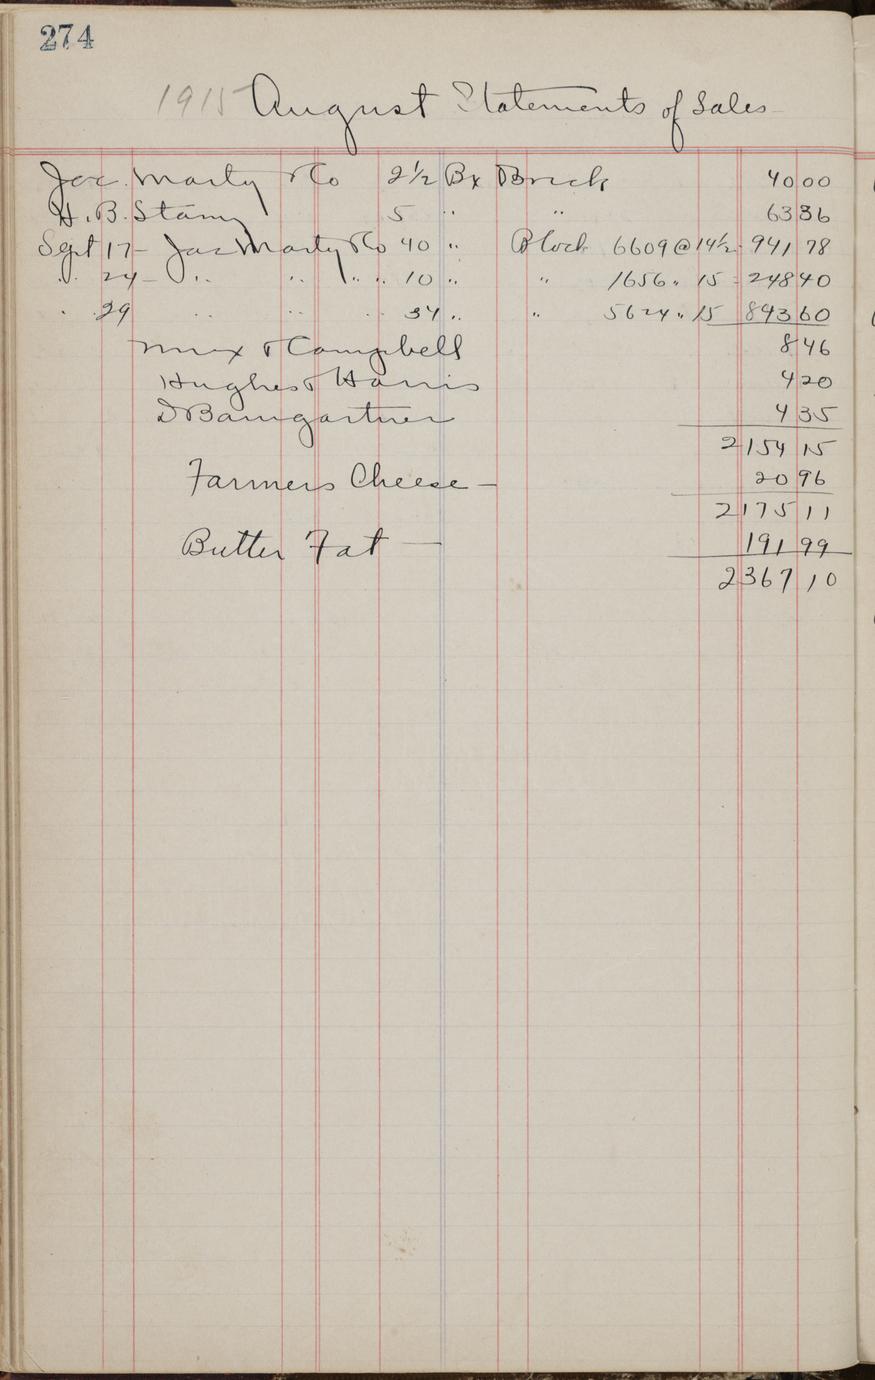 274
1915 August Statements of Sales
Jac. Marty & Co 2½ Bx Brick 40 00
H. B. Stamy 5 " " 63 36
Sept 17 - Jac Marty & Co 40 " Block 6609 @ 14¼ - 941 78
" 24 - " " " " 10 " " 1656 " 15 - 248 40
" 29 " " " 34 " " 5624 " 15 843 60
Mix & Campbell 8 46
Hughes & Harris 4 20
D Baumgartner 4 35
2154 15
Farmers Cheese — 20 96
2175 11
Butter Fat — 191 99
2367 10